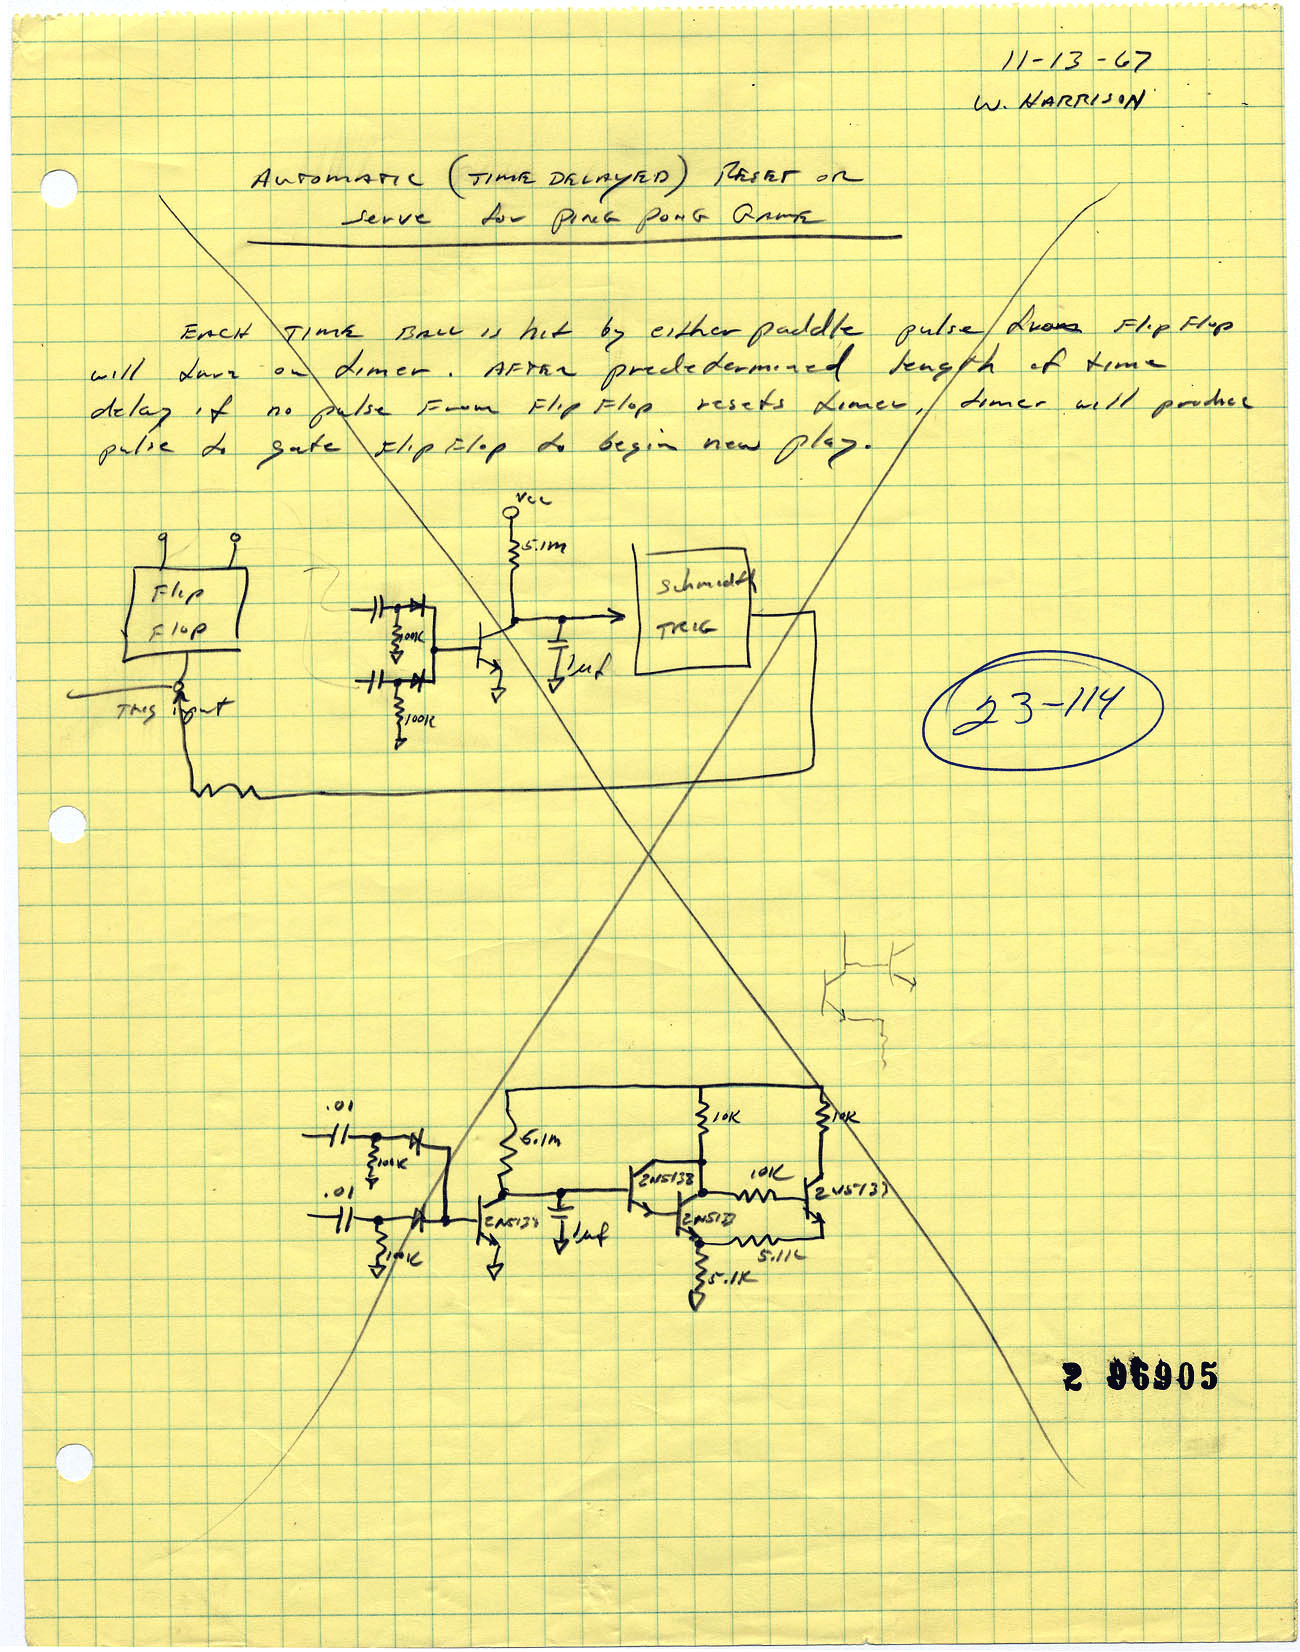 11-13-67
W. HARRISON
AUTOMATIC (TIME DELAYED) RESET OR
serve for PING PONG GAME
EACH TIME BALL is hit by either paddle pulse from Flip Flop
will turn on timer. AFTER predetermined length of time
delay if no pulse From Flip Flop resets timer, timer will produce
pulse to gate Flip Flop to begin new play.
Vcc
5.1M
Flip
Flop
Schmidtt
TRIG
100K
1uf
100K
Trig input
23-114
.01
10K
10K
100K
5.1M
.01
2N5138
10K
2N5133
2N5133
1uf
100K
5.11K
5.1K
2 96905